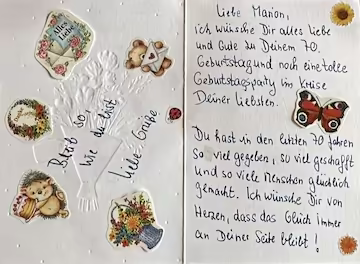 Alles
Liebe
Bleib so,
wie du bist
Liebe Grüße
Liebe Marion,
ich wünsche Dir alles Liebe
und Gute zu Deinem 70.
Geburtstag und noch eine tolle
Geburtstagsparty im Kreise
Deiner Liebsten.
Du hast in den letzten 70 Jahren
so viel gegeben, so viel geschafft
und so viele Menschen glücklich
gemacht. Ich wünsche Dir von
Herzen, dass das Glück immer
an Deiner Seite bleibt!